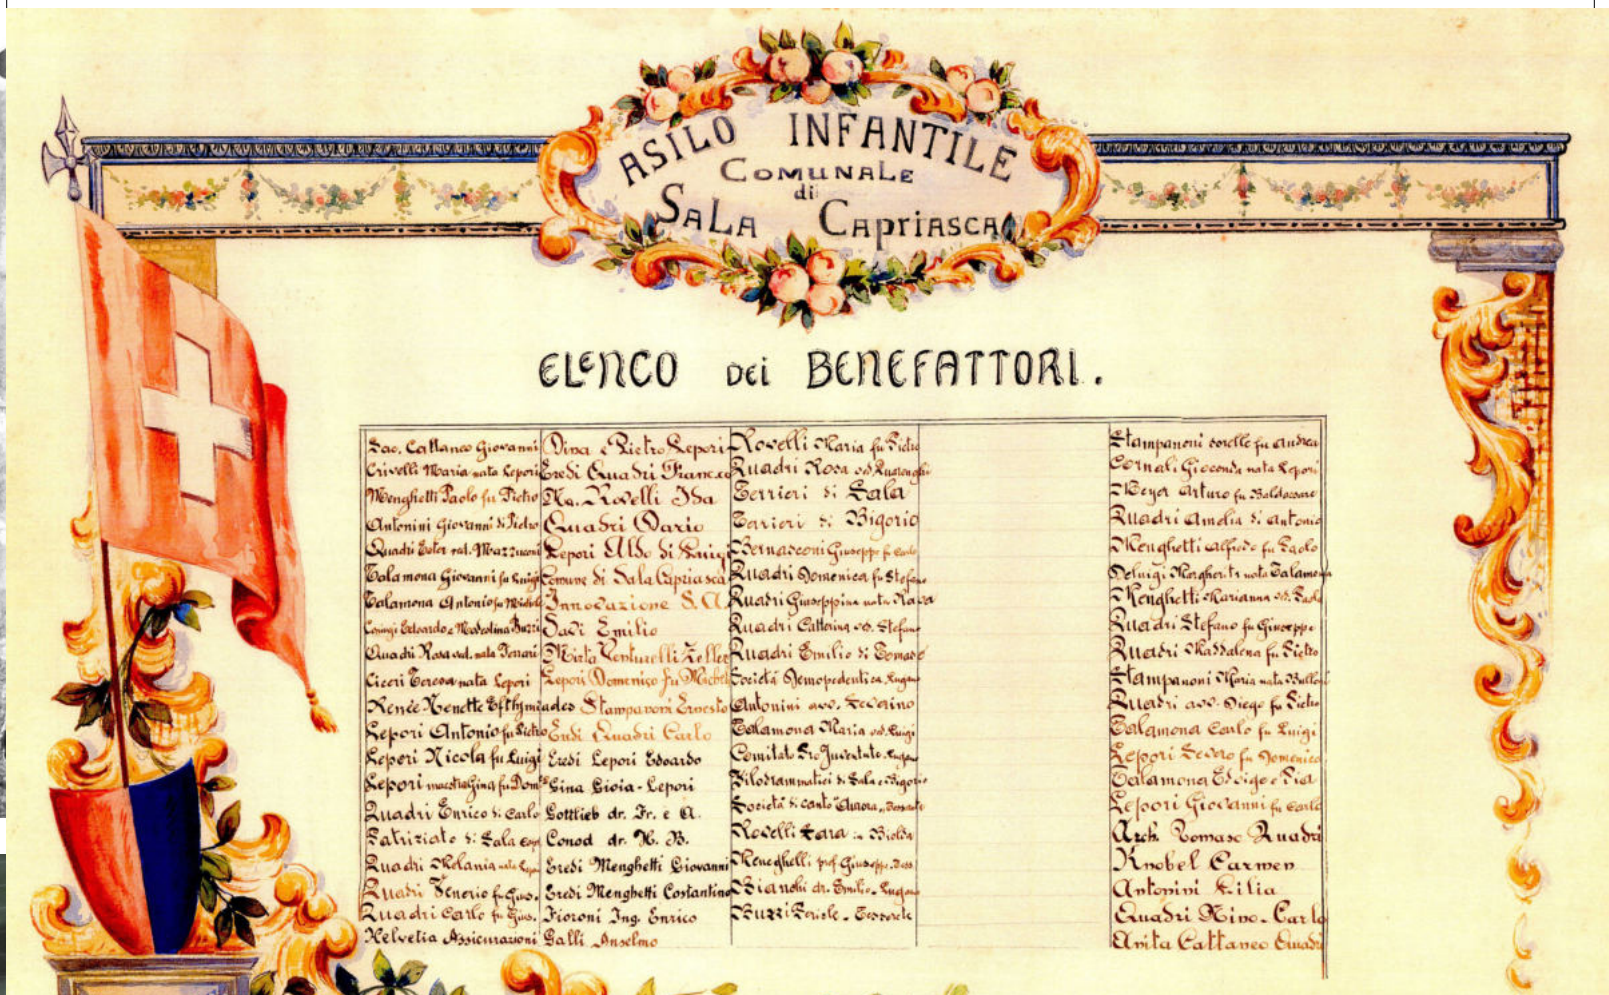 ASILO INFANTILE
COMUNALE
di
SALA CAPRIASCA
ELENCO DEI BENEFATTORI.
Sac. Cattaneo Giovanni
Crivelli Maria nata Lepori
Menghetti Paolo fu Pietro
Antonini Giovanni di Pietro
Quadri Ester ved. Mazzuconi
Talamona Giovanni fu Luigi
Talamona Antonio fu Michele
Edoardo e Maddalina Buzzi
Quadri Rosa ved. nata
Ciceri Teresa nata Lepori
Renée Nenette Efthymiades
Lepori Antonio fu Pietro
Lepori Nicola fu Luigi
Lepori maestra Gina fu Dom.
Quadri Enrico di Carlo
Patriziato di Sala Capr.
Quadri Melania nata
Quadri Venerio fu Gius.
Quadri Carlo fu Gius.
Helvetia Assicurazioni
Dina e Pietro Lepori
Eredi Quadri Franc.co
Rovelli Ida
Quadri Dario
Lepori Aldo di Luigi
Comune di Sala Capriasca
Innovazione S.A.
Savi Emilio
Mirta Venturelli Zeller
Lepori Domenico fu Michele
Stampanoni Ernesto
Eredi Quadri Carlo
Eredi Lepori Edoardo
Gina Gioia-Lepori
Gottlieb dr. Fr. e A.
Conod dr. N. B.
Eredi Menghetti Giovanni
Eredi Menghetti Costantino
Fioroni Ing. Enrico
Galli Anselmo
Rovelli Maria fu Pietro
Quadri Rosa ved. Quarenghi
Terrieri di Sala
Terrieri di Bigorio
Bernasconi Giuseppe fu Carlo
Quadri Domenica fu Stefano
Quadri Giuseppina nata Rava
Quadri Catterina ved. Stefano
Quadri Emilio di Tomaso
Società Demopedeutica Lugano
Antonini avv. Severino
Talamona Maria ved. Luigi
Comitato Pro Juventute. Lugano
Filodrammatici di Sala e Bigorio
Società di canto "Aurora" Tesserete
Rovelli Sara in Biolda
Meneghelli prof. Giuseppe.
Bianchi dr. Emilio. Lugano
Buzzi - Tesserete
Stampanoni sorelle fu Andrea
Cornali Gioconda nata Lepori
Meyer Arturo fu Baldassare
Quadri Amelia di Antonio
Menghetti Alfredo fu Paolo
Deluigi Margherita nata Talamona
Menghetti Marianna ved. Paolo
Quadri Stefano fu Giuseppe
Quadri Maddalena fu Pietro
Stampanoni Maria nata
Quadri avv. Diego fu Pietro
Talamona Carlo fu Luigi
Lepori Severo fu Domenico
Talamona Edvige e Pia
Lepori Giovanni fu Carlo
Arch. Tomaso Quadri
Knobel Carmen
Antonini Lilia
Quadri Nino-Carlo
Anita Cattaneo Quadri